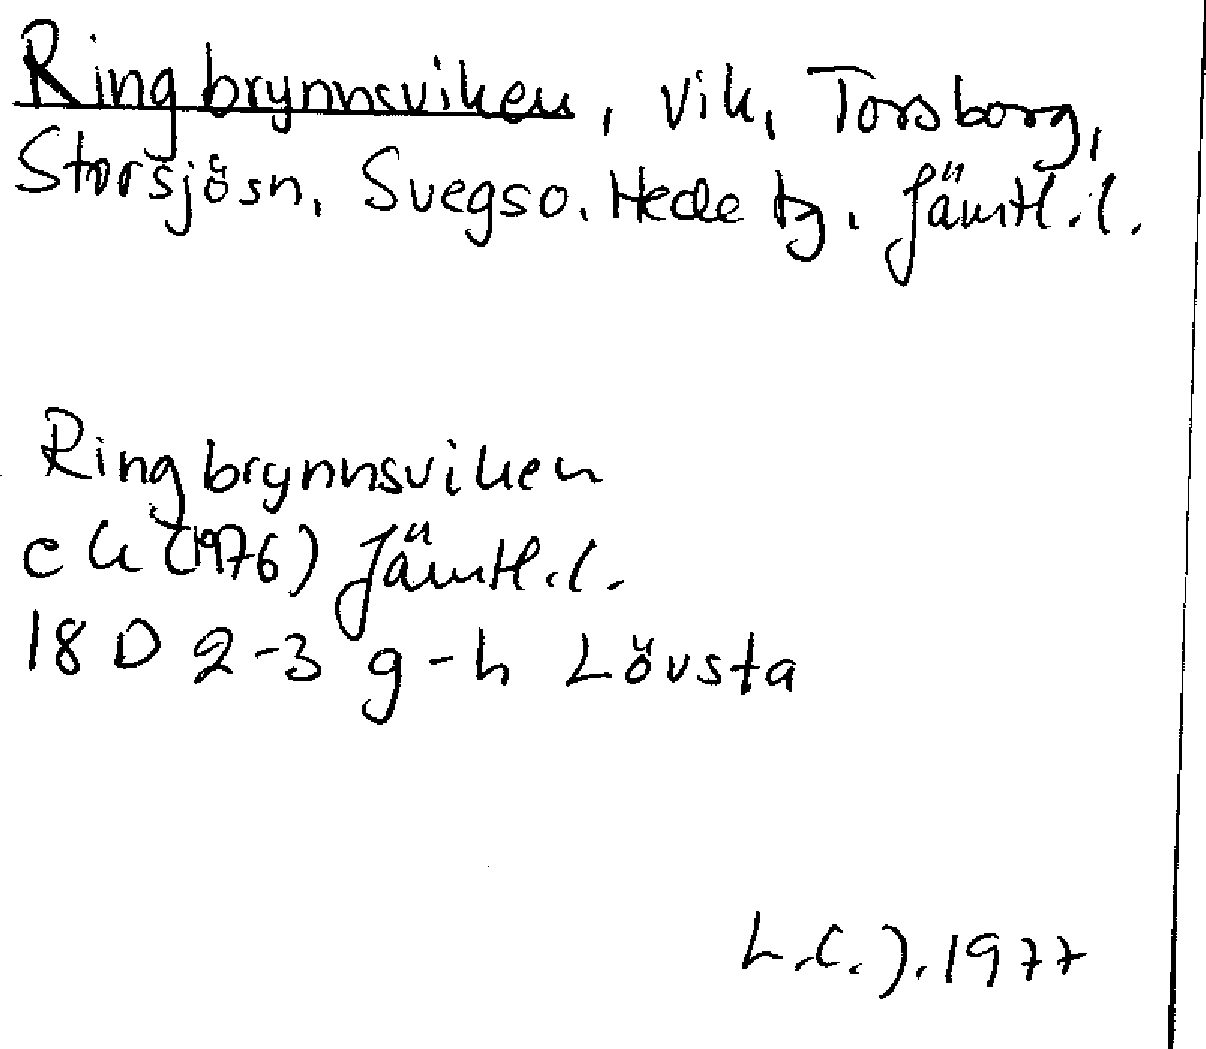 Ringbrynnsviken, vik, Torsborg,
Storsjösn, Svegso. Hede tg. Jämtl.l.
Ringbrynnsviken
ek (1976) Jämtl.l.
18 D 2-3 g-h Lövsta
L.C.J. 1977